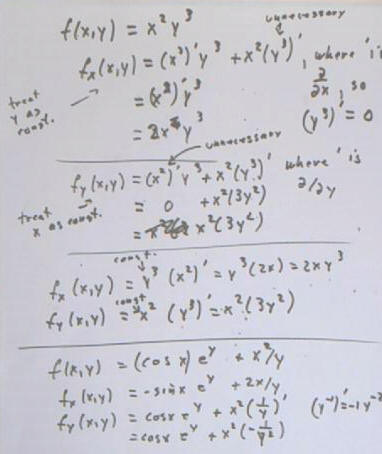 unnecessary
f(x,y) = x²y³
f_x(x,y) = (x²)'y³ + x²(y³)', where ' is
treat y as const.
∂/∂x, so
= (x²)'y³
(y³)' = 0
= 2x y³
unnecessary
f_y(x,y) = (x²)'y³ + x²(y³)' where ' is
∂/∂y
treat x as const.
= 0 + x²(3y²)
= x²(3y²)
const.
f_x(x,y) = y³(x²)' = y³(2x) = 2xy³
const
f_y(x,y) = x²(y³)' = x²(3y²)
f(x,y) = (cos x)e^y + x²/y
f_x(x,y) = -sin x e^y + 2x/y
f_y(x,y) = cosx e^y + x²(1/y)' (y⁻¹)' = -1y⁻²
= cosx e^y + x²(-1/y²)